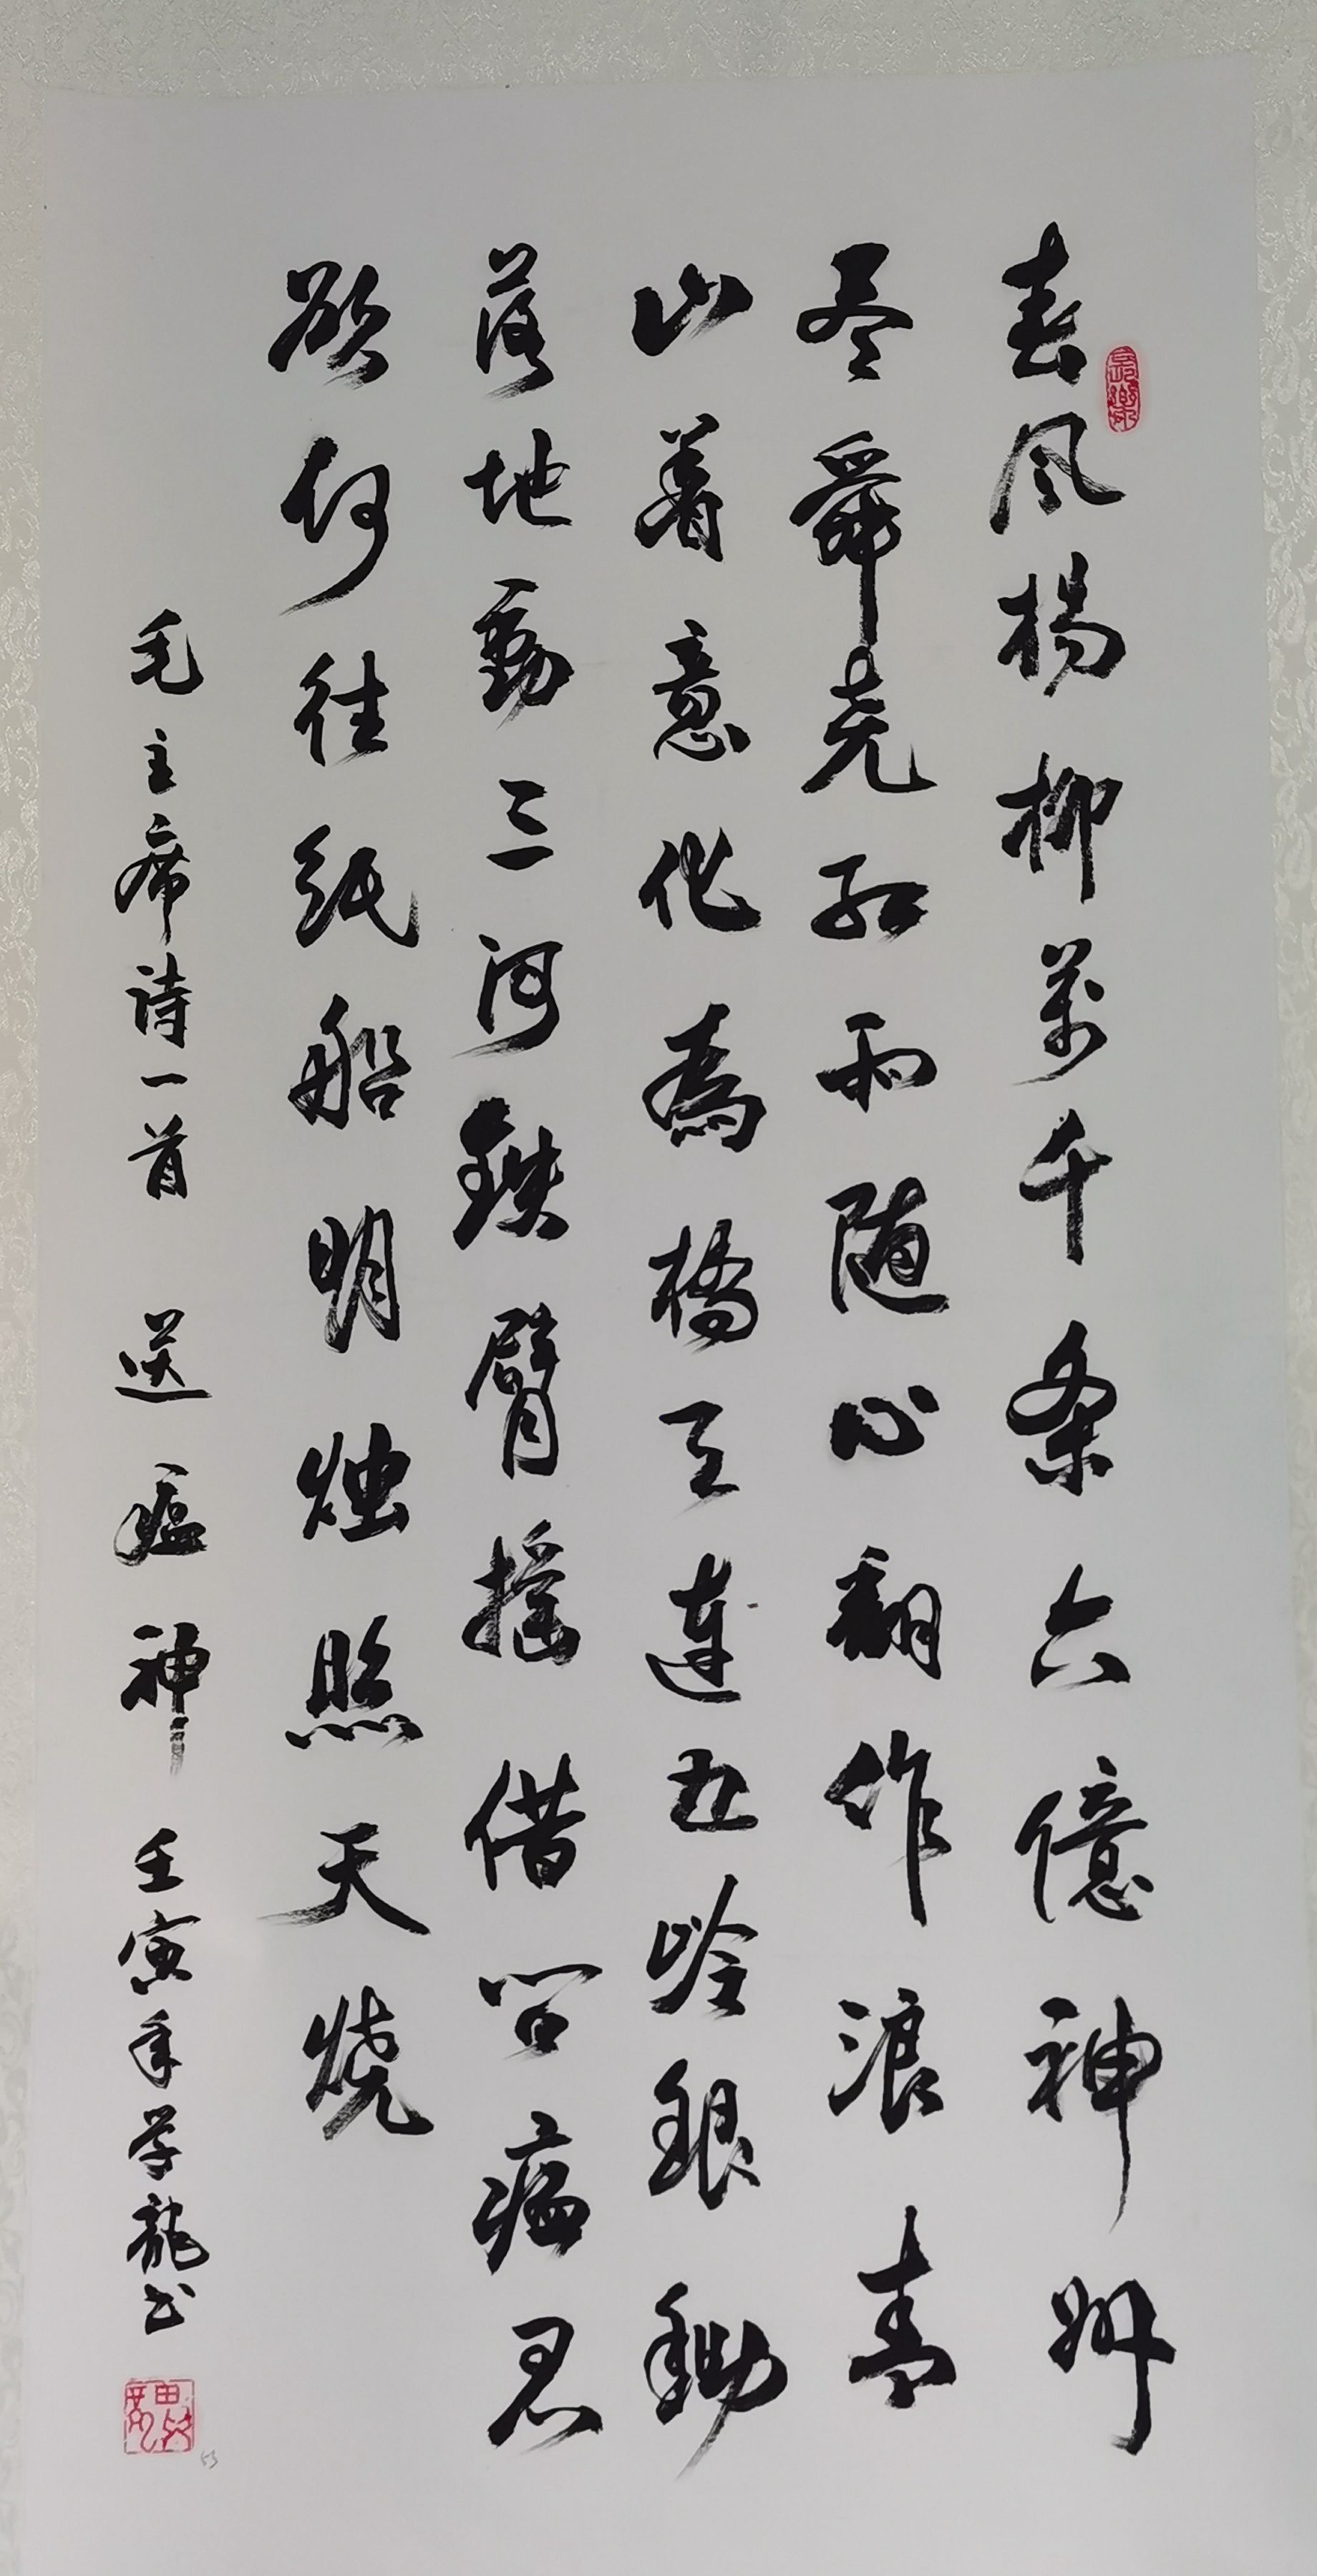 春风楊柳萬千条六億神州
尽舜尧红雨随心翻作浪青
山着意化為橋天連五岭銀鋤
落地動三河鉄臂摇借问瘟君
欲何往纸船明烛照天烧
毛主席诗一首 送瘟神 壬寅年学龍书